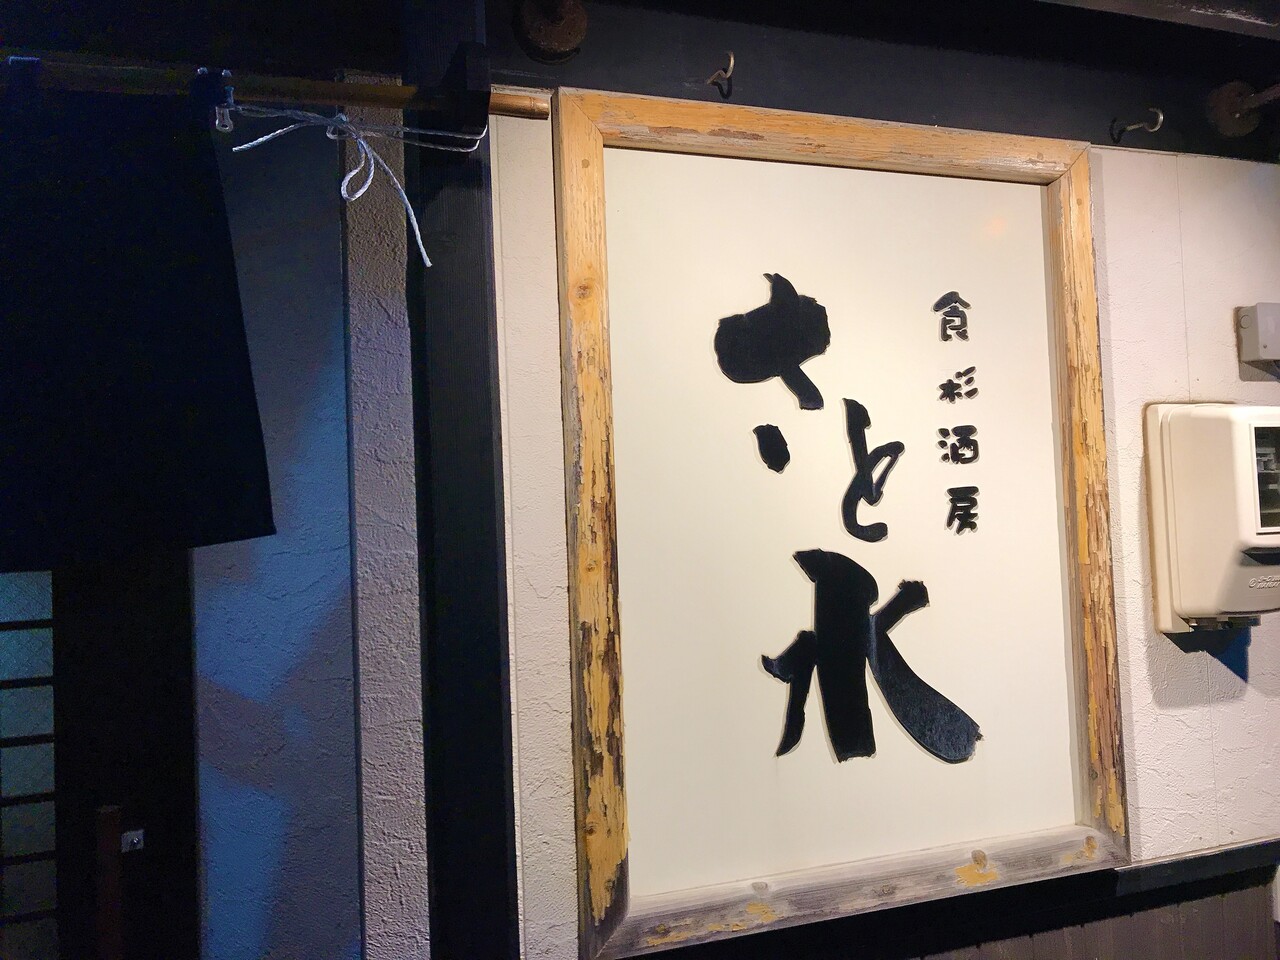 食彩酒房
さと水